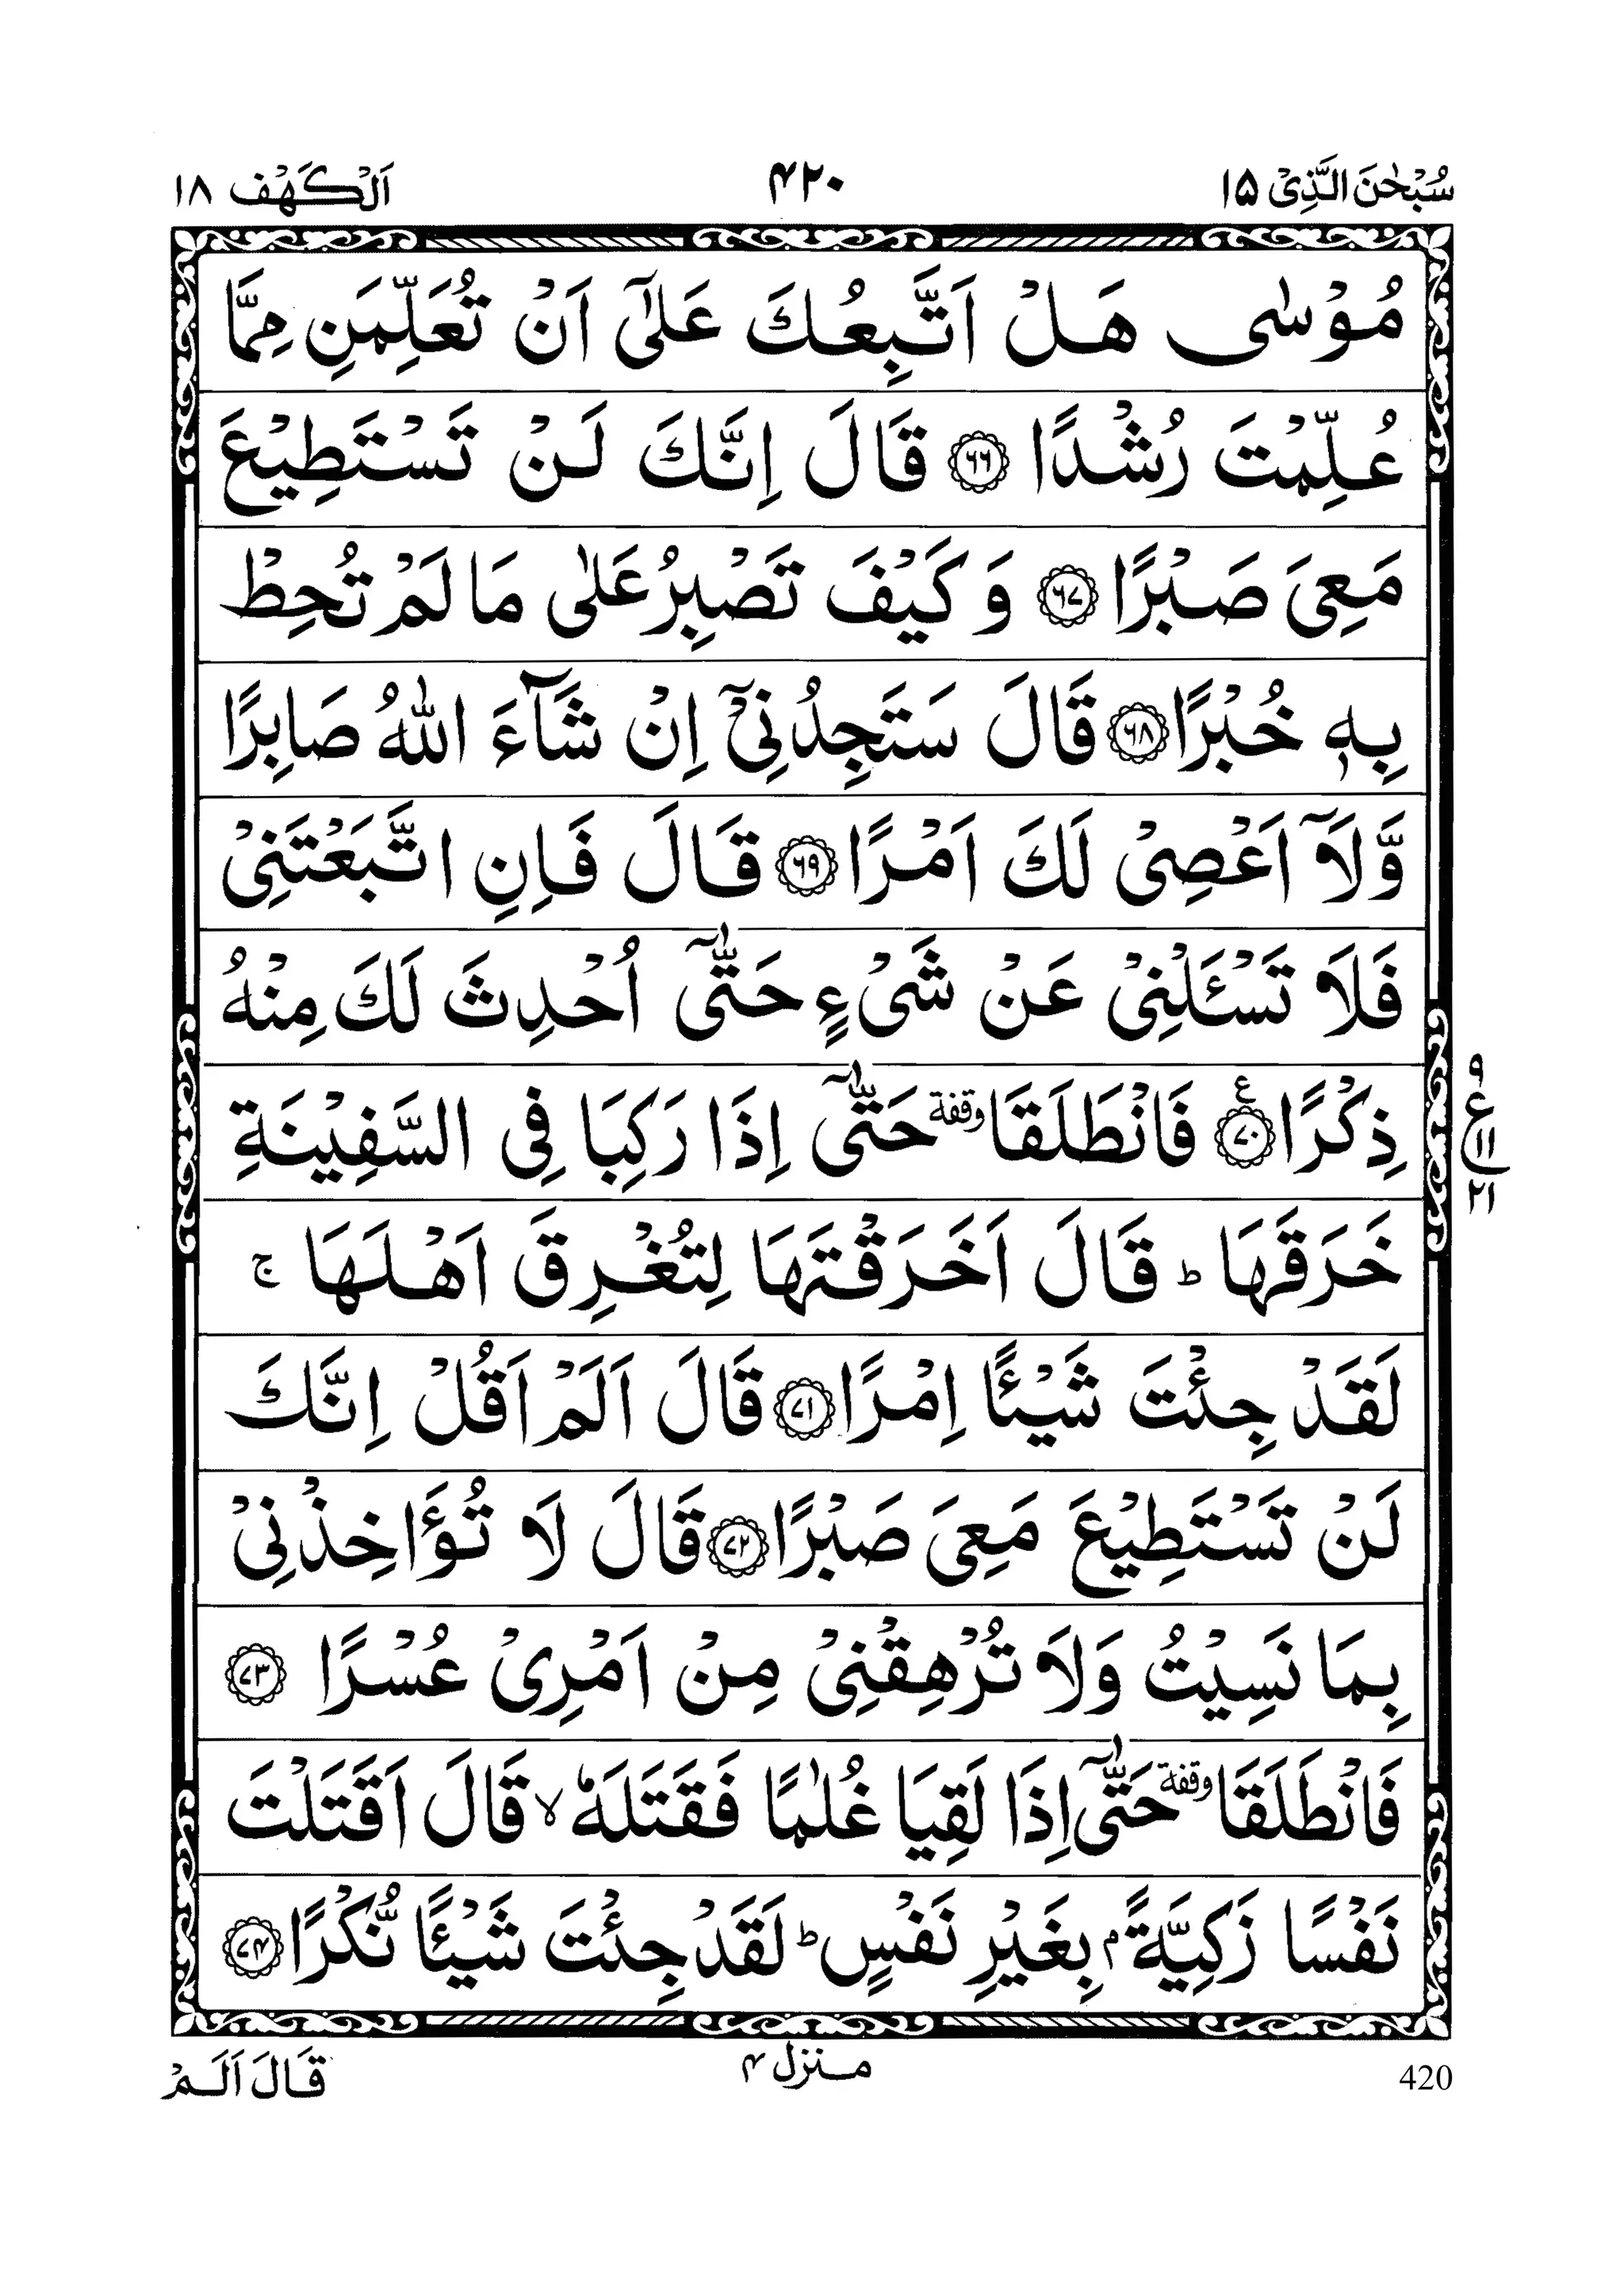 سُبْحٰنَ الَّذِیْ ۱۵
۴۲۰
اَلْكَهْف ۱۸
مُوْسٰى هَلْ اَتَّبِعُكَ عَلٰۤى اَنْ تُعَلِّمَنِ مِمَّا
عُلِّمْتَ رُشْدًا ۶۶ قَالَ اِنَّكَ لَنْ تَسْتَطِیْعَ
مَعِیَ صَبْرًا ۶۷ وَ كَیْفَ تَصْبِرُ عَلٰى مَا لَمْ تُحِطْ
بِهٖ خُبْرًا ۶۸ قَالَ سَتَجِدُنِیْۤ اِنْ شَآءَ اللّٰهُ صَابِرًا
وَّلَاۤ اَعْصِیْ لَكَ اَمْرًا ۶۹ قَالَ فَاِنِ اتَّبَعْتَنِیْ
فَلَا تَسْـَٔلْنِیْ عَنْ شَیْءٍ حَتّٰۤى اُحْدِثَ لَكَ مِنْهُ
ذِكْرًا ۷۰ ع فَانْطَلَقَا وقفة حَتّٰۤى اِذَا رَكِبَا فِی السَّفِیْنَةِ
خَرَقَهَا ط قَالَ اَخَرَقْتَهَا لِتُغْرِقَ اَهْلَهَا ج
لَقَدْ جِئْتَ شَیْـًٔا اِمْرًا ۷۱ قَالَ اَلَمْ اَقُلْ اِنَّكَ
لَنْ تَسْتَطِیْعَ مَعِیَ صَبْرًا ۷۲ قَالَ لَا تُؤَاخِذْنِیْ
بِمَا نَسِیْتُ وَلَا تُرْهِقْنِیْ مِنْ اَمْرِیْ عُسْرًا ۷۳
فَانْطَلَقَا وقفة حَتّٰۤى اِذَا لَقِیَا غُلٰمًا فَقَتَلَهٗ لا قَالَ اَقَتَلْتَ
نَفْسًا زَكِیَّةًۢ بِغَیْرِ نَفْسٍ ط لَقَدْ جِئْتَ شَیْـًٔا نُّكْرًا ۷۴
۹
ع ۱۱
۲۱
قَالَ اَلَمْ
منزل ۴
420